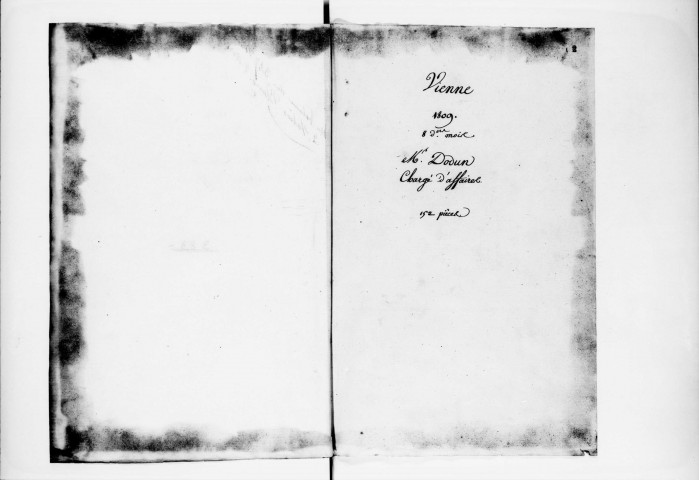 2
Vienne
1809.
8 d.res mois.
Mr. Dodun
Chargé d'affaires.
152 pièces.